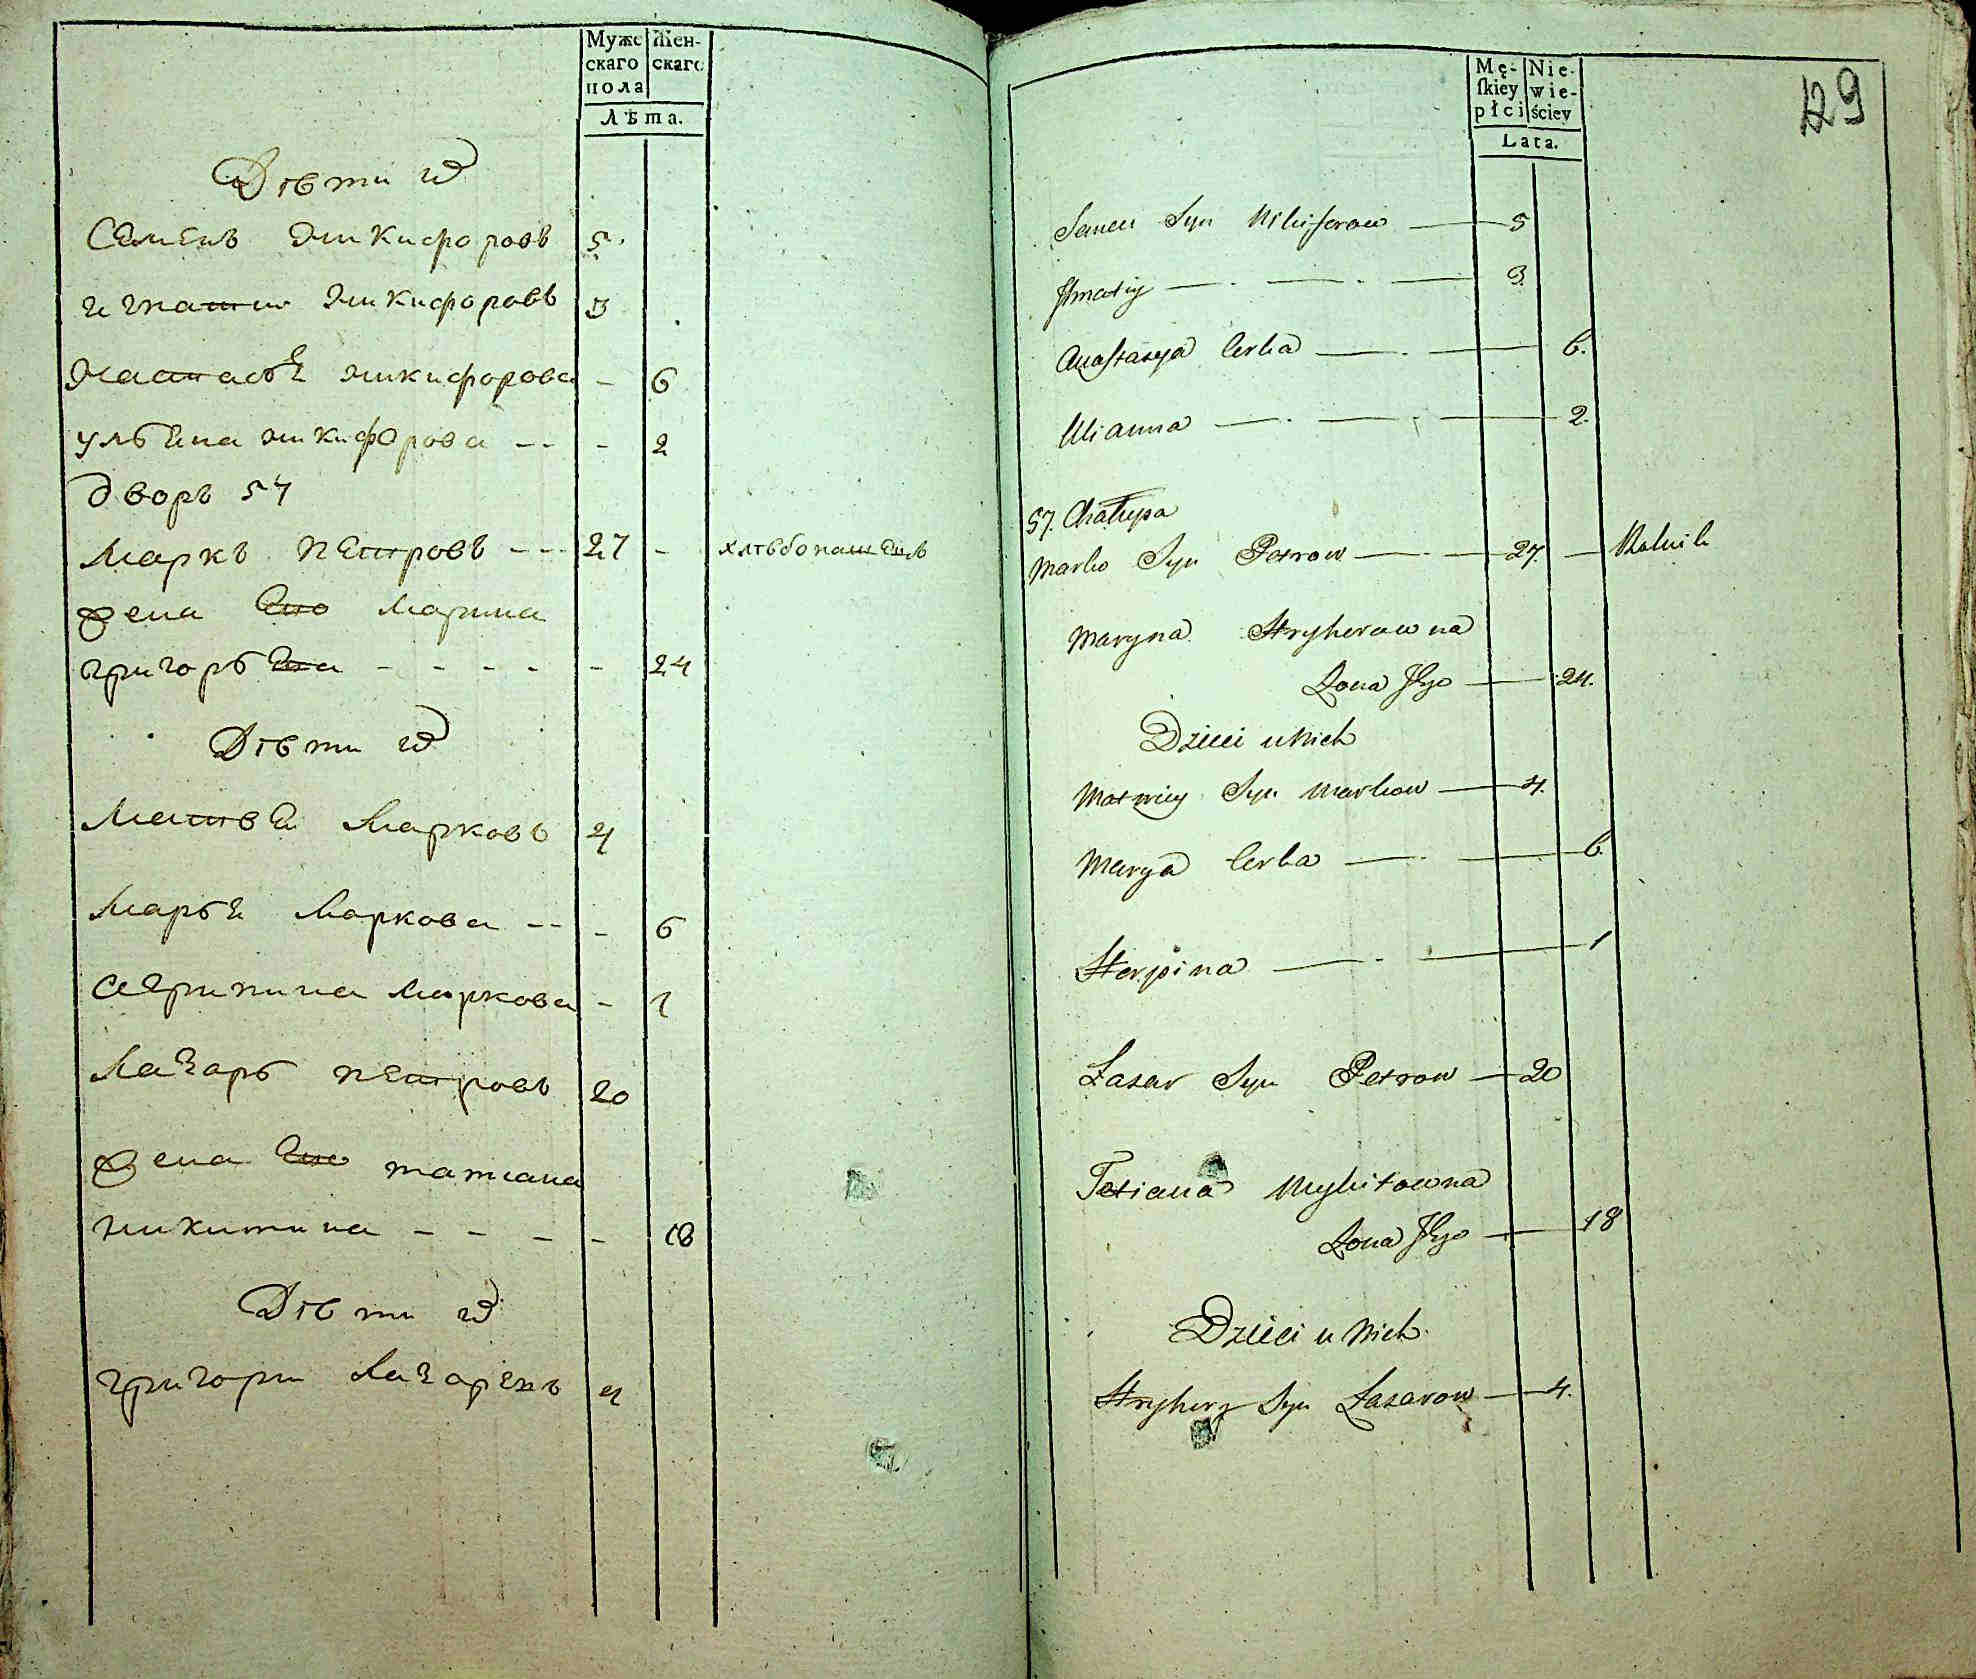 Муже
скаго
пола
Жен-
скаго
Лѣта.
Дѣти их
Семенъ Никифоровъ 5
игнатии Никифоровъ 3
Настасѣя никифорова - 6
улѣяна никифорова -- - 2
дворъ 57
Маркъ петровъ --- 27 - хлѣбопашецъ
жена его Марина
григорѣева - - - - - 24
Дѣти их
Матвѣй Марковъ 4
Марѣя Маркова -- - 6
агрипина Маркова - 1
Лазарь петровъ 20
жена его татиана
никитина - - - - 18
Дѣти их
григори Лазаревъ 4
Mę-
ſkiey
płci
Nie-
wie-
ściey
Lata.
129
Semen Syn Nikiforow — 5
Ihnatiy — 3
Anastazya Corka — 6.
Ulianna — 2.
57. Chałupa
Marko Syn Petrow — 27. — Rolnik
Maryna Hryhorowna
Zona Jego — 24.
Dzieci u Nich
Matwiey Syn Markow — 4.
Marya Corka — 6
Herpina — 1
Łazar Syn Petrow — 20
Tetiana Mykitowna
Zona Jego — 18
Dzieci u Nich
Hryhory Syn Łazarow — 4.